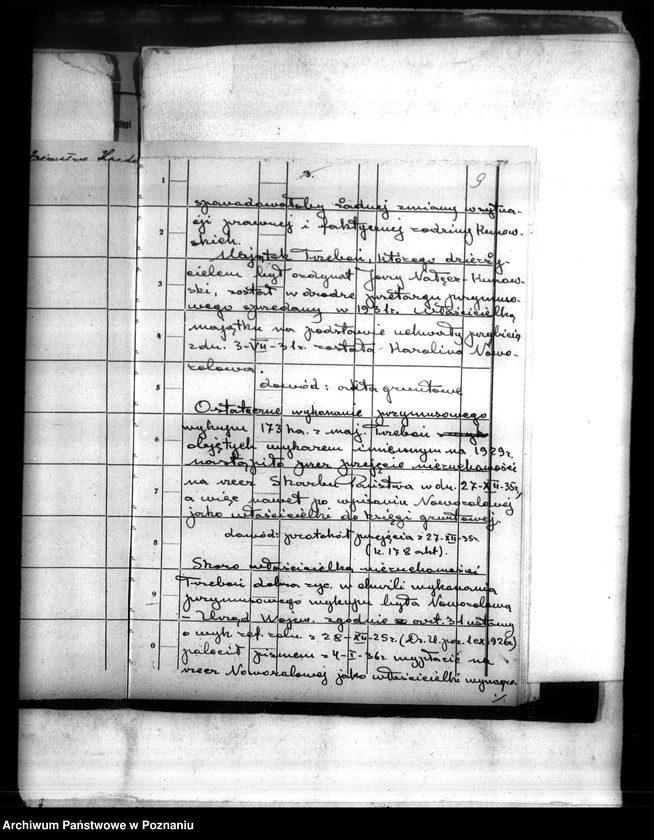 3.
9
spowodowałoby żadnej zmiany w sytua-
cji prawnej i faktycznej rodziny Kurow-
skich.
Majątek Trzeboń, którego dzierży-
cielem był ordynat Jerzy Kurow-
ski, został w drodze przetargu przymuso-
wego sprzedany w 1931r. Właścicielką
majątku na podstawie uchwały przybicia
z dn. 3-VII-31r. została Karolina Nowo-
rolowa.
dowód: akta gruntowe
Ostateczne wykonanie przymusowego
wykupu 173 ha. z maj. Trzeboń
objętych wykazem imiennym na 1929r.
nastąpiło przez przejęcie nieruchomości
na rzecz Skarbu Państwa w dn. 27-XII-35r,
a więc nawet po wpisaniu Noworolowej
jako właścicielki do księgi gruntowej.
dowód: protokół przejęcia z 27-XII-35r.
(k. 178 akt).
Skoro właścicielką nieruchomości
Trzeboń dobra ryc. w chwili wykonania
przymusowego wykupu była Noworolowa
- Urząd Wojew. zgodnie z art. 31 ustawy
o wyk. ref. roln. z 28-XII-25r. (Dz. U. poz. 1 ex 926)
polecił pismem z 4-I-36r. wypłacić na
rzecz Noworolowej jako właścicielki wynagro-
./.
1
2
3
4
5
6
7
8
9
0
Archiwum Państwowe w Poznaniu